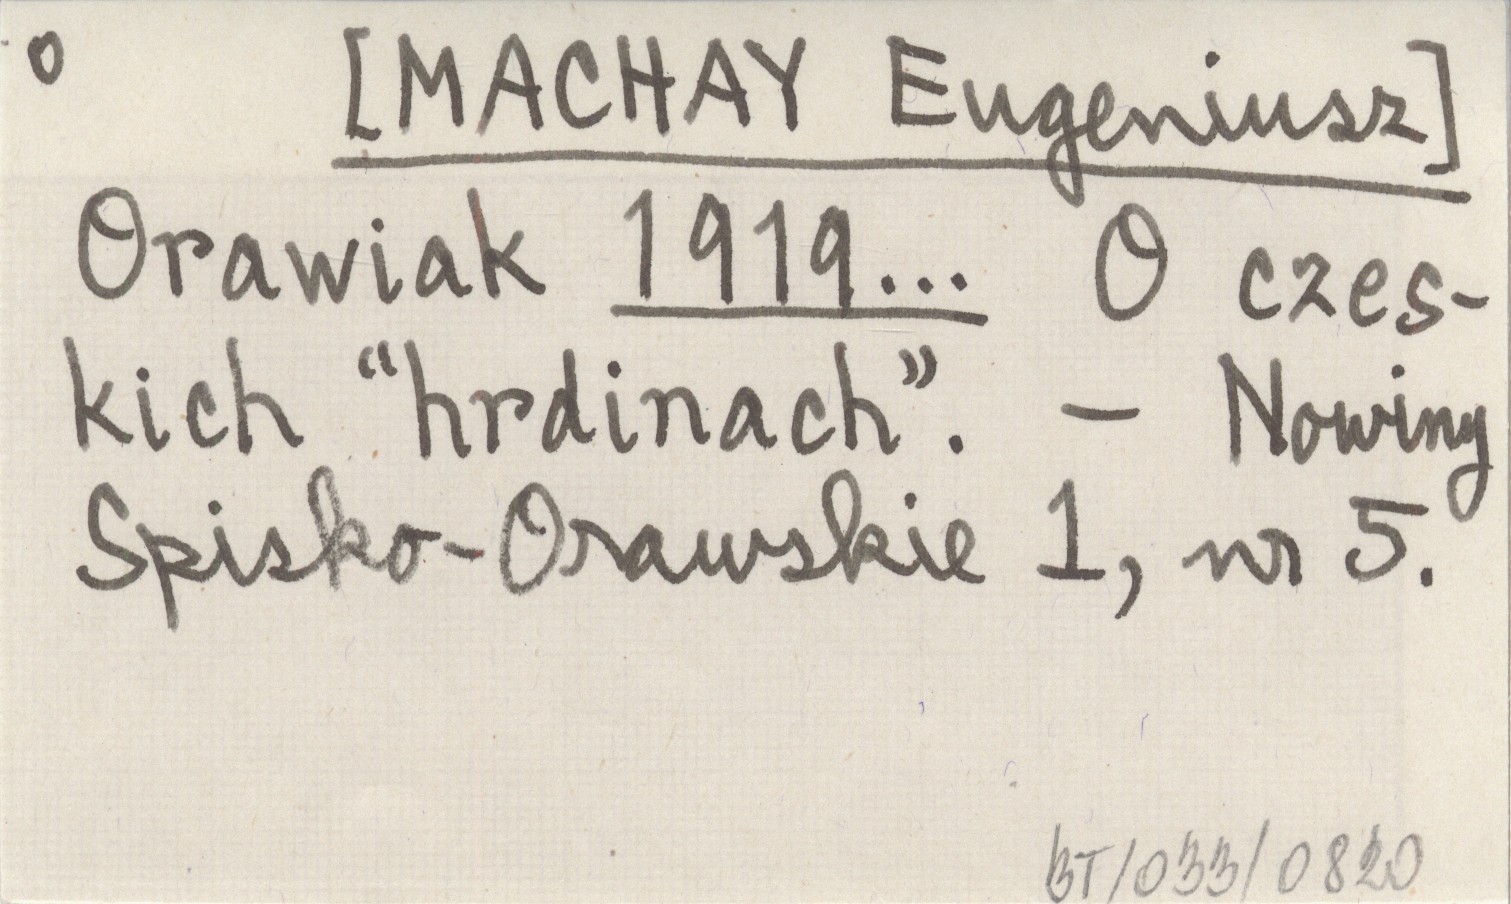 o [MACHAY Eugeniusz]
Orawiak 1919... O czes-
kich “hrdinach”. – Nowiny
Spisko-Orawskie 1, nr 5.
BT/033/0820